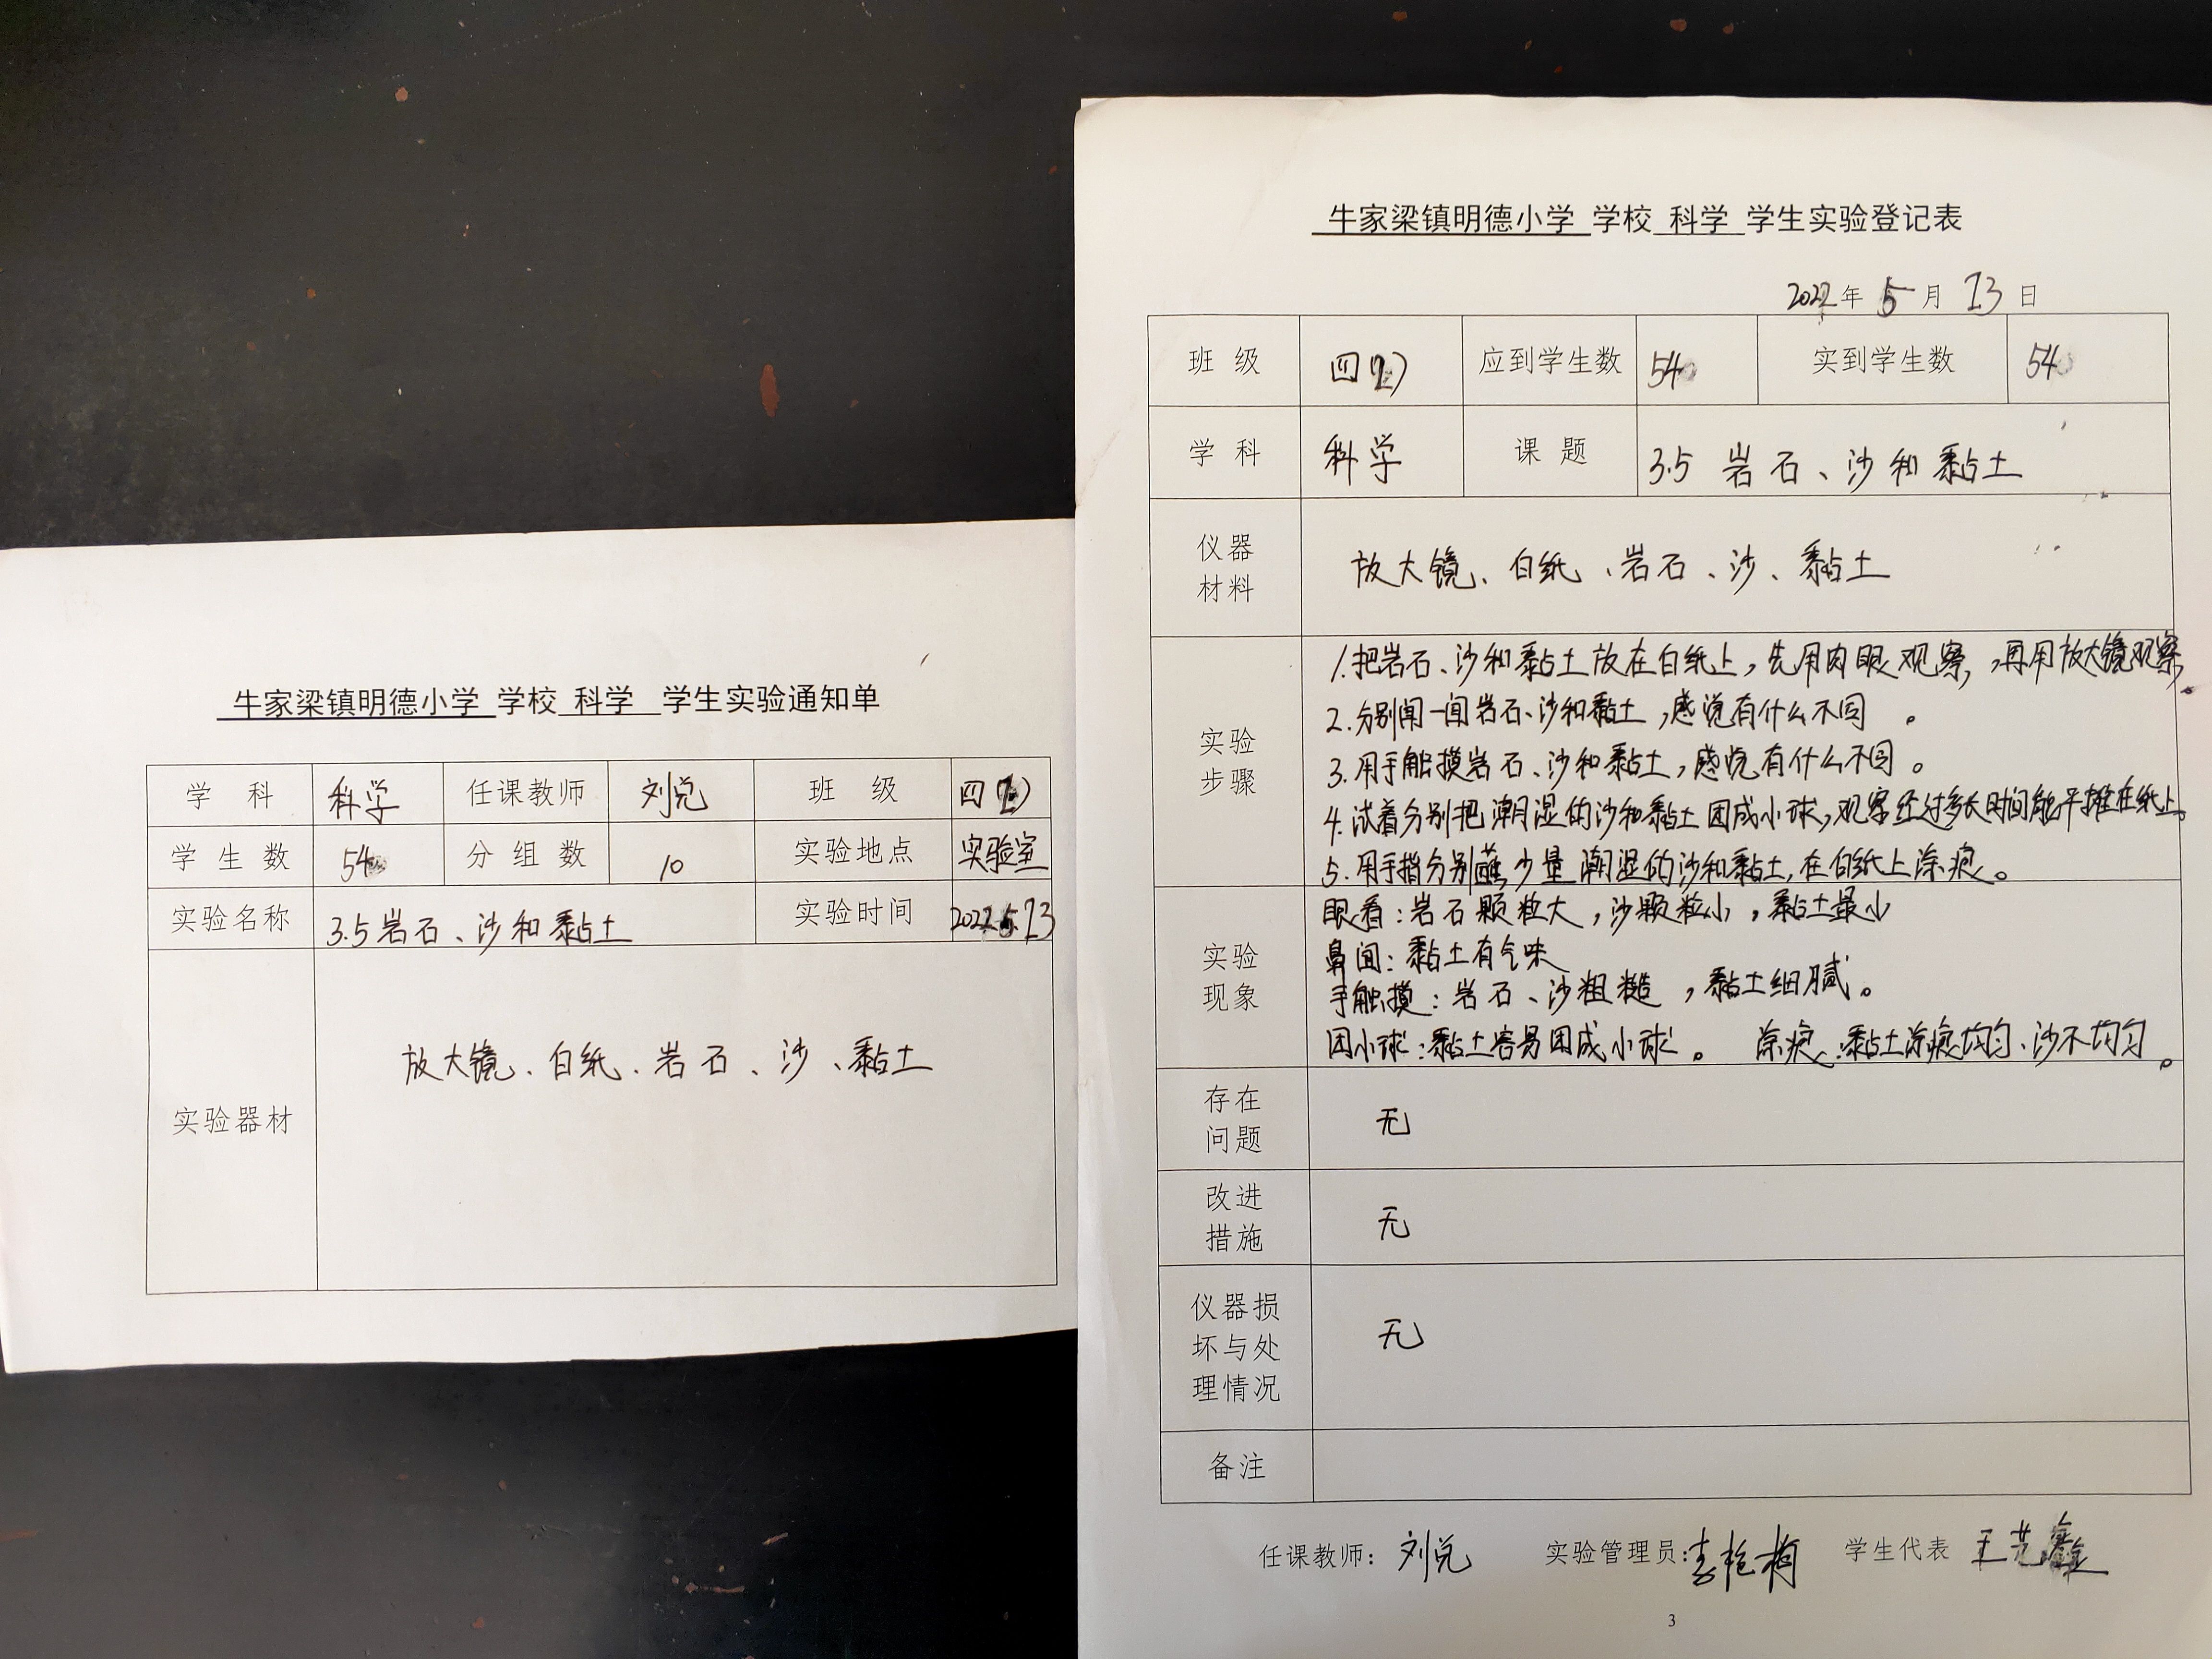 牛家梁镇明德小学 学校 科学 学生实验通知单
学 科 科学 任课教师 刘悦 班 级 四
学 生 数 54 分 组 数 10 实验地点 实验室
实验名称 3.5岩石、沙和黏土 实验时间 2022.5.13
实验器材 放大镜、白纸、岩石、沙、黏土
牛家梁镇明德小学 学校 科学 学生实验登记表
2022年 5 月 13 日
班 级 四 应到学生数 54 实到学生数 54
学 科 科学 课 题 3.5 岩石、沙和黏土
仪器
材料
放大镜、白纸、岩石、沙、黏土
实验
步骤
1.把岩石、沙和黏土放在白纸上,先用肉眼观察,再用放大镜观察。
2.分别闻一闻岩石、沙和黏土,感觉有什么不同。
3.用手触摸岩石、沙和黏土,感觉有什么不同。
4.试着分别把潮湿的沙和黏土团成小球,观察经过多长时间能平摊在纸上。
5.用手指分别蘸少量潮湿的沙和黏土,在白纸上涂痕。
实验
现象
眼看:岩石颗粒大,沙颗粒小,黏土最小
鼻闻:黏土有气味
手触摸:岩石、沙粗糙,黏土细腻。
团小球:黏土容易团成小球。 涂痕:黏土涂痕均匀、沙不均匀。
存在
问题
无
改进
措施
无
仪器损
坏与处
理情况
无
备注
任课教师: 刘悦 实验管理员:李艳梅 学生代表 王艺鑫
3